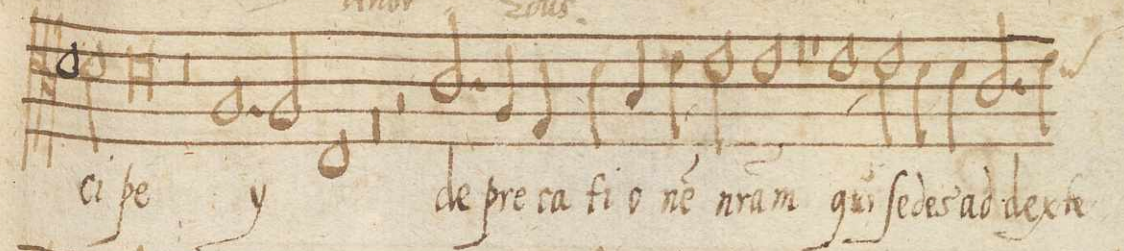 ci pe y de pre ca ti o nē nrām qui sedes ad dexte